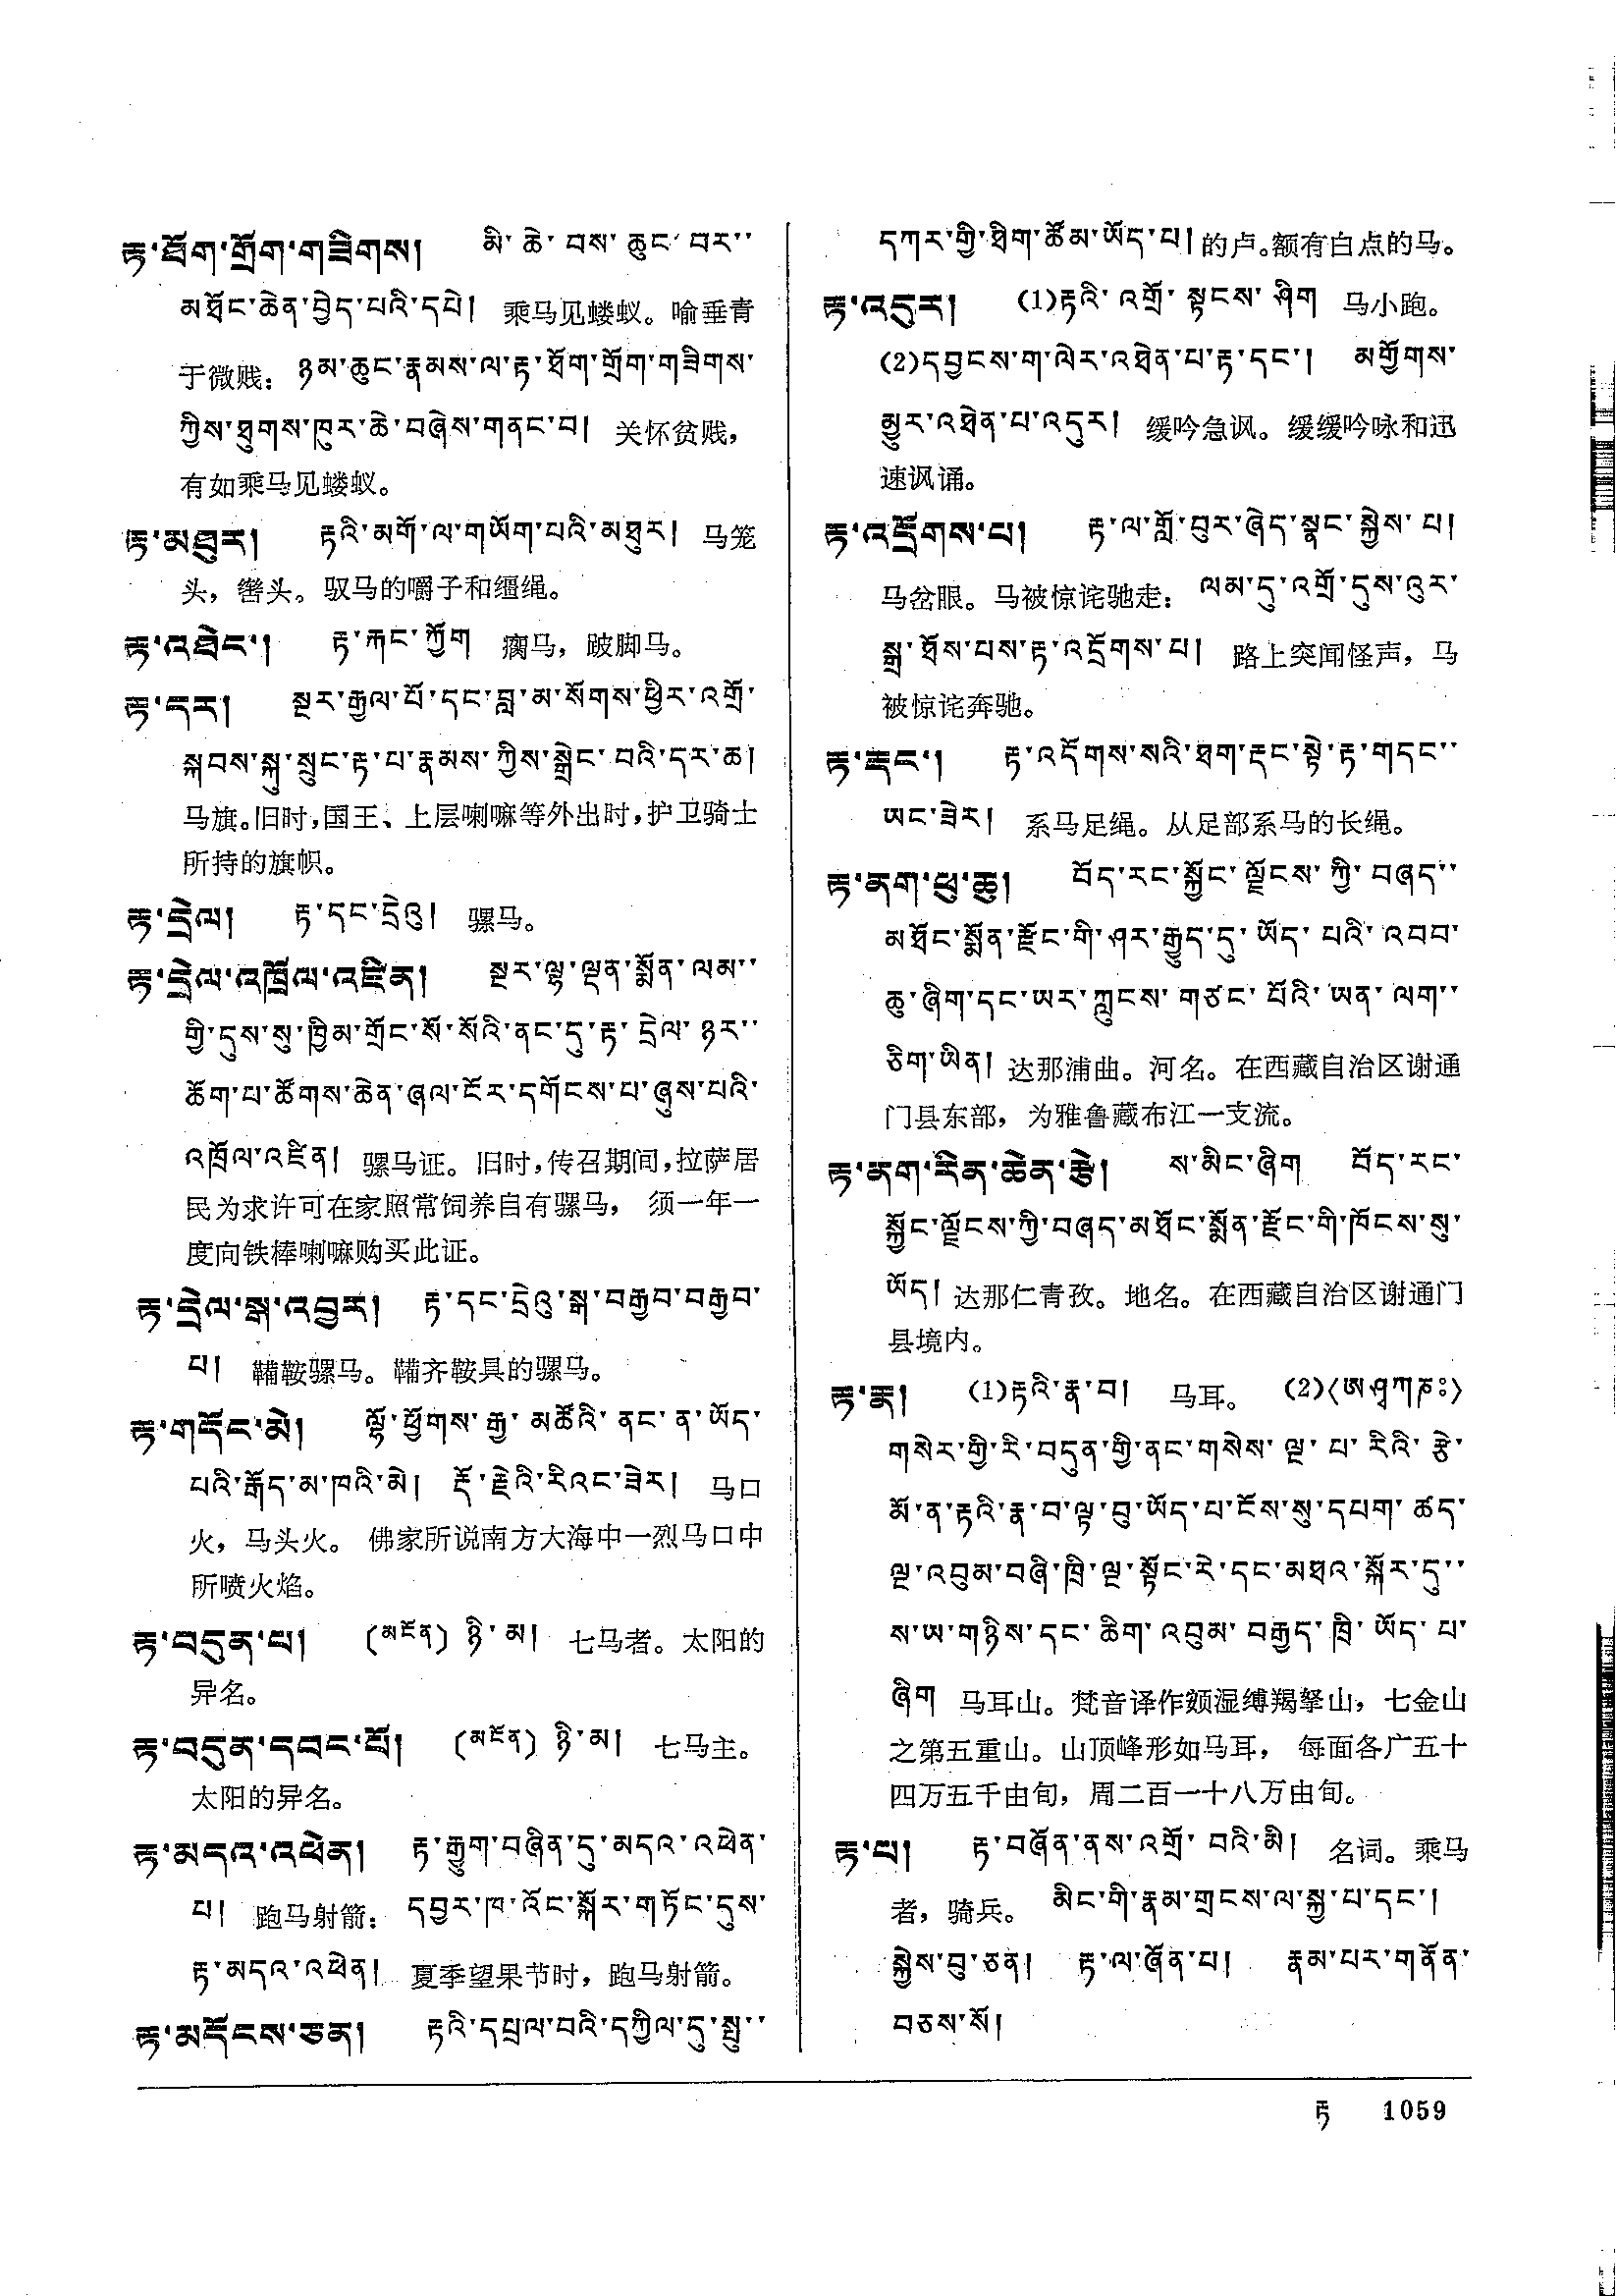 རྟ་ཐོག་གྲོག་གཟིགས། མི་ཆེ་བས་ཆུང་བར་་
མཐོང་ཆེན་བྱེད་པའི་དཔེ། 乘马见蝼蚁。喻垂青
于微贱：ཉམ་ཆུང་རྣམས་ལ་རྟ་ཐོག་གྲོག་གཟིགས་
ཀྱིས་ཐུགས་ཁུར་ཆེ་བཞེས་གནང་བ། 关怀贫贱，
有如乘马见蝼蚁。
རྟ་མཐུར། རྟའི་མགོ་ལ་གཡོག་པའི་མཐུར། 马笼
头，辔头。驭马的嚼子和缰绳。
རྟ་འཐེང་། རྟ་རྐང་ཀྱོག 瘸马，跛脚马。
རྟ་དར། སྔར་རྒྱལ་པོ་དང་བླ་མ་སོགས་ཕྱིར་འགྲོ་
སྐབས་སྐུ་སྲུང་རྟ་པ་རྣམས་ཀྱིས་སྒྲེང་བའི་དར་ཆ།
马旗。旧时，国王、上层喇嘛等外出时，护卫骑士
所持的旗帜。
རྟ་དྲེལ། རྟ་དང་དྲེའུ། 骡马。
རྟ་དྲེལ་འཁྲོལ་འཛིན། སྔར་ལྷ་ལྡན་སྨོན་ལམ་་
གྱི་དུས་སུ་ཁྱིམ་གྲོང་སོ་སོའི་ནང་དུ་རྟ་དྲེལ་ཉར་་
ཆོག་པ་ཚོགས་ཆེན་ཞལ་ངོར་དགོངས་པ་ཞུས་པའི་
འཁྲོལ་འཛིན། 骡马证。旧时，传召期间，拉萨居
民为求许可在家照常饲养自有骡马， 须一年一
度向铁棒喇嘛购买此证。
རྟ་དྲེལ་སྒ་འབྱར། རྟ་དང་དྲེའུ་སྒ་བརྒྱབ་བརྒྱབ་
པ། 鞴鞍骡马。鞴齐鞍具的骡马。
རྟ་གདོང་མེ། ལྷོ་ཕྱོགས་རྒྱ་མཚོའི་ནང་ན་ཡོད་
པའི་རྒོད་མ་ཁའི་མེ། རྡོ་རྗེའི་རིའང་ཟེར། 马口
火，马头火。 佛家所说南方大海中一烈马口中
所喷火焰。
རྟ་བདུན་པ། (མངོན) ཉི་མ། 七马者。太阳的
异名。
རྟ་བདུན་དབང་པོ། (མངོན) ཉི་མ། 七马主。
太阳的异名。
རྟ་མདའ་འཕེན། རྟ་རྒྱུག་བཞིན་དུ་མདའ་འཕེན་
པ། 跑马射箭：དབྱར་ཁ་འོང་སྐོར་གཏོང་དུས་
རྟ་མདའ་འཕེན། 夏季望果节时，跑马射箭。
རྟ་མདོངས་ཅན། རྟའི་དཔྲལ་བའི་དཀྱིལ་དུ་སྤུ་་
དཀར་གྱི་ཐིག་ཚོམ་ཡོད་པ། 的卢。额有白点的马。
རྟ་འདུར། (1)རྟའི་འགྲོ་སྟངས་ཤིག 马小跑。
(2)དབྱངས་ག་ལེར་འཐེན་པ་རྟ་དང་། མགྱོགས་
མྱུར་འཐེན་པ་འདུར། 缓吟急讽。缓缓吟咏和迅
速讽诵。
རྟ་འདྲོགས་པ། རྟ་ལ་གློ་བུར་ཞེད་སྣང་སྐྱེས་པ།
马岔眼。马被惊诧驰走：ལམ་དུ་འགྲོ་དུས་འུར་
སྒྲ་ཐོས་པས་རྟ་འདྲོགས་པ། 路上突闻怪声，马
被惊诧奔驰。
རྟ་རྡང་། རྟ་འདོགས་སའི་ཐག་རྡང་སྟེ་རྟ་གདང་་
ཡང་ཟེར། 系马足绳。从足部系马的长绳。
རྟ་ནག་ཕུ་ཆུ། བོད་རང་སྐྱོང་ལྗོངས་ཀྱི་བཞད་་
མཐོང་སྨོན་རྫོང་གི་ཤར་རྒྱུད་དུ་ཡོད་པའི་འབབ་
ཆུ་ཞིག་དང་ཡར་ཀླུངས་གཙང་པོའི་ཡན་ལག་་
ཅིག་ཡིན། 达那浦曲。河名。在西藏自治区谢通
门县东部，为雅鲁藏布江一支流。
རྟ་ནག་རིན་ཆེན་རྩེ། ས་མིང་ཞིག བོད་རང་
སྐྱོང་ལྗོངས་ཀྱི་བཞད་མཐོང་སྨོན་རྫོང་གི་ཁོངས་སུ་
ཡོད། 达那仁青孜。地名。在西藏自治区谢通门
县境内。
རྟ་རྣ། (1)རྟའི་རྣ་བ། 马耳。 (2)〈ཨཤྭཀརྞཿ〉
གསེར་གྱི་རི་བདུན་གྱི་ནང་གསེས་ལྔ་པ་རིའི་རྩེ་
མོ་ན་རྟའི་རྣ་བ་ལྟ་བུ་ཡོད་པ་ངོས་སུ་དཔག་ཚད་
ལྔ་འབུམ་བཞི་ཁྲི་ལྔ་སྟོང་རེ་དང་མཐའ་སྐོར་དུ་་
ས་ཡ་གཉིས་དང་ཆིག་འབུམ་བརྒྱད་ཁྲི་ཡོད་པ་
ཞིག 马耳山。梵音译作頞湿缚羯拏山，七金山
之第五重山。山顶峰形如马耳， 每面各广五十
四万五千由旬，周二百一十八万由旬。
རྟ་པ། རྟ་བཞོན་ནས་འགྲོ་བའི་མི། 名词。乘马
者，骑兵。 མིང་གི་རྣམ་གྲངས་ལ་སྐྱ་པ་དང་།
སྐྱེས་བུ་ཅན། རྟ་ལ་ཞོན་པ། རྣམ་པར་གནོན་
བཅས་སོ།
རྟ 1059